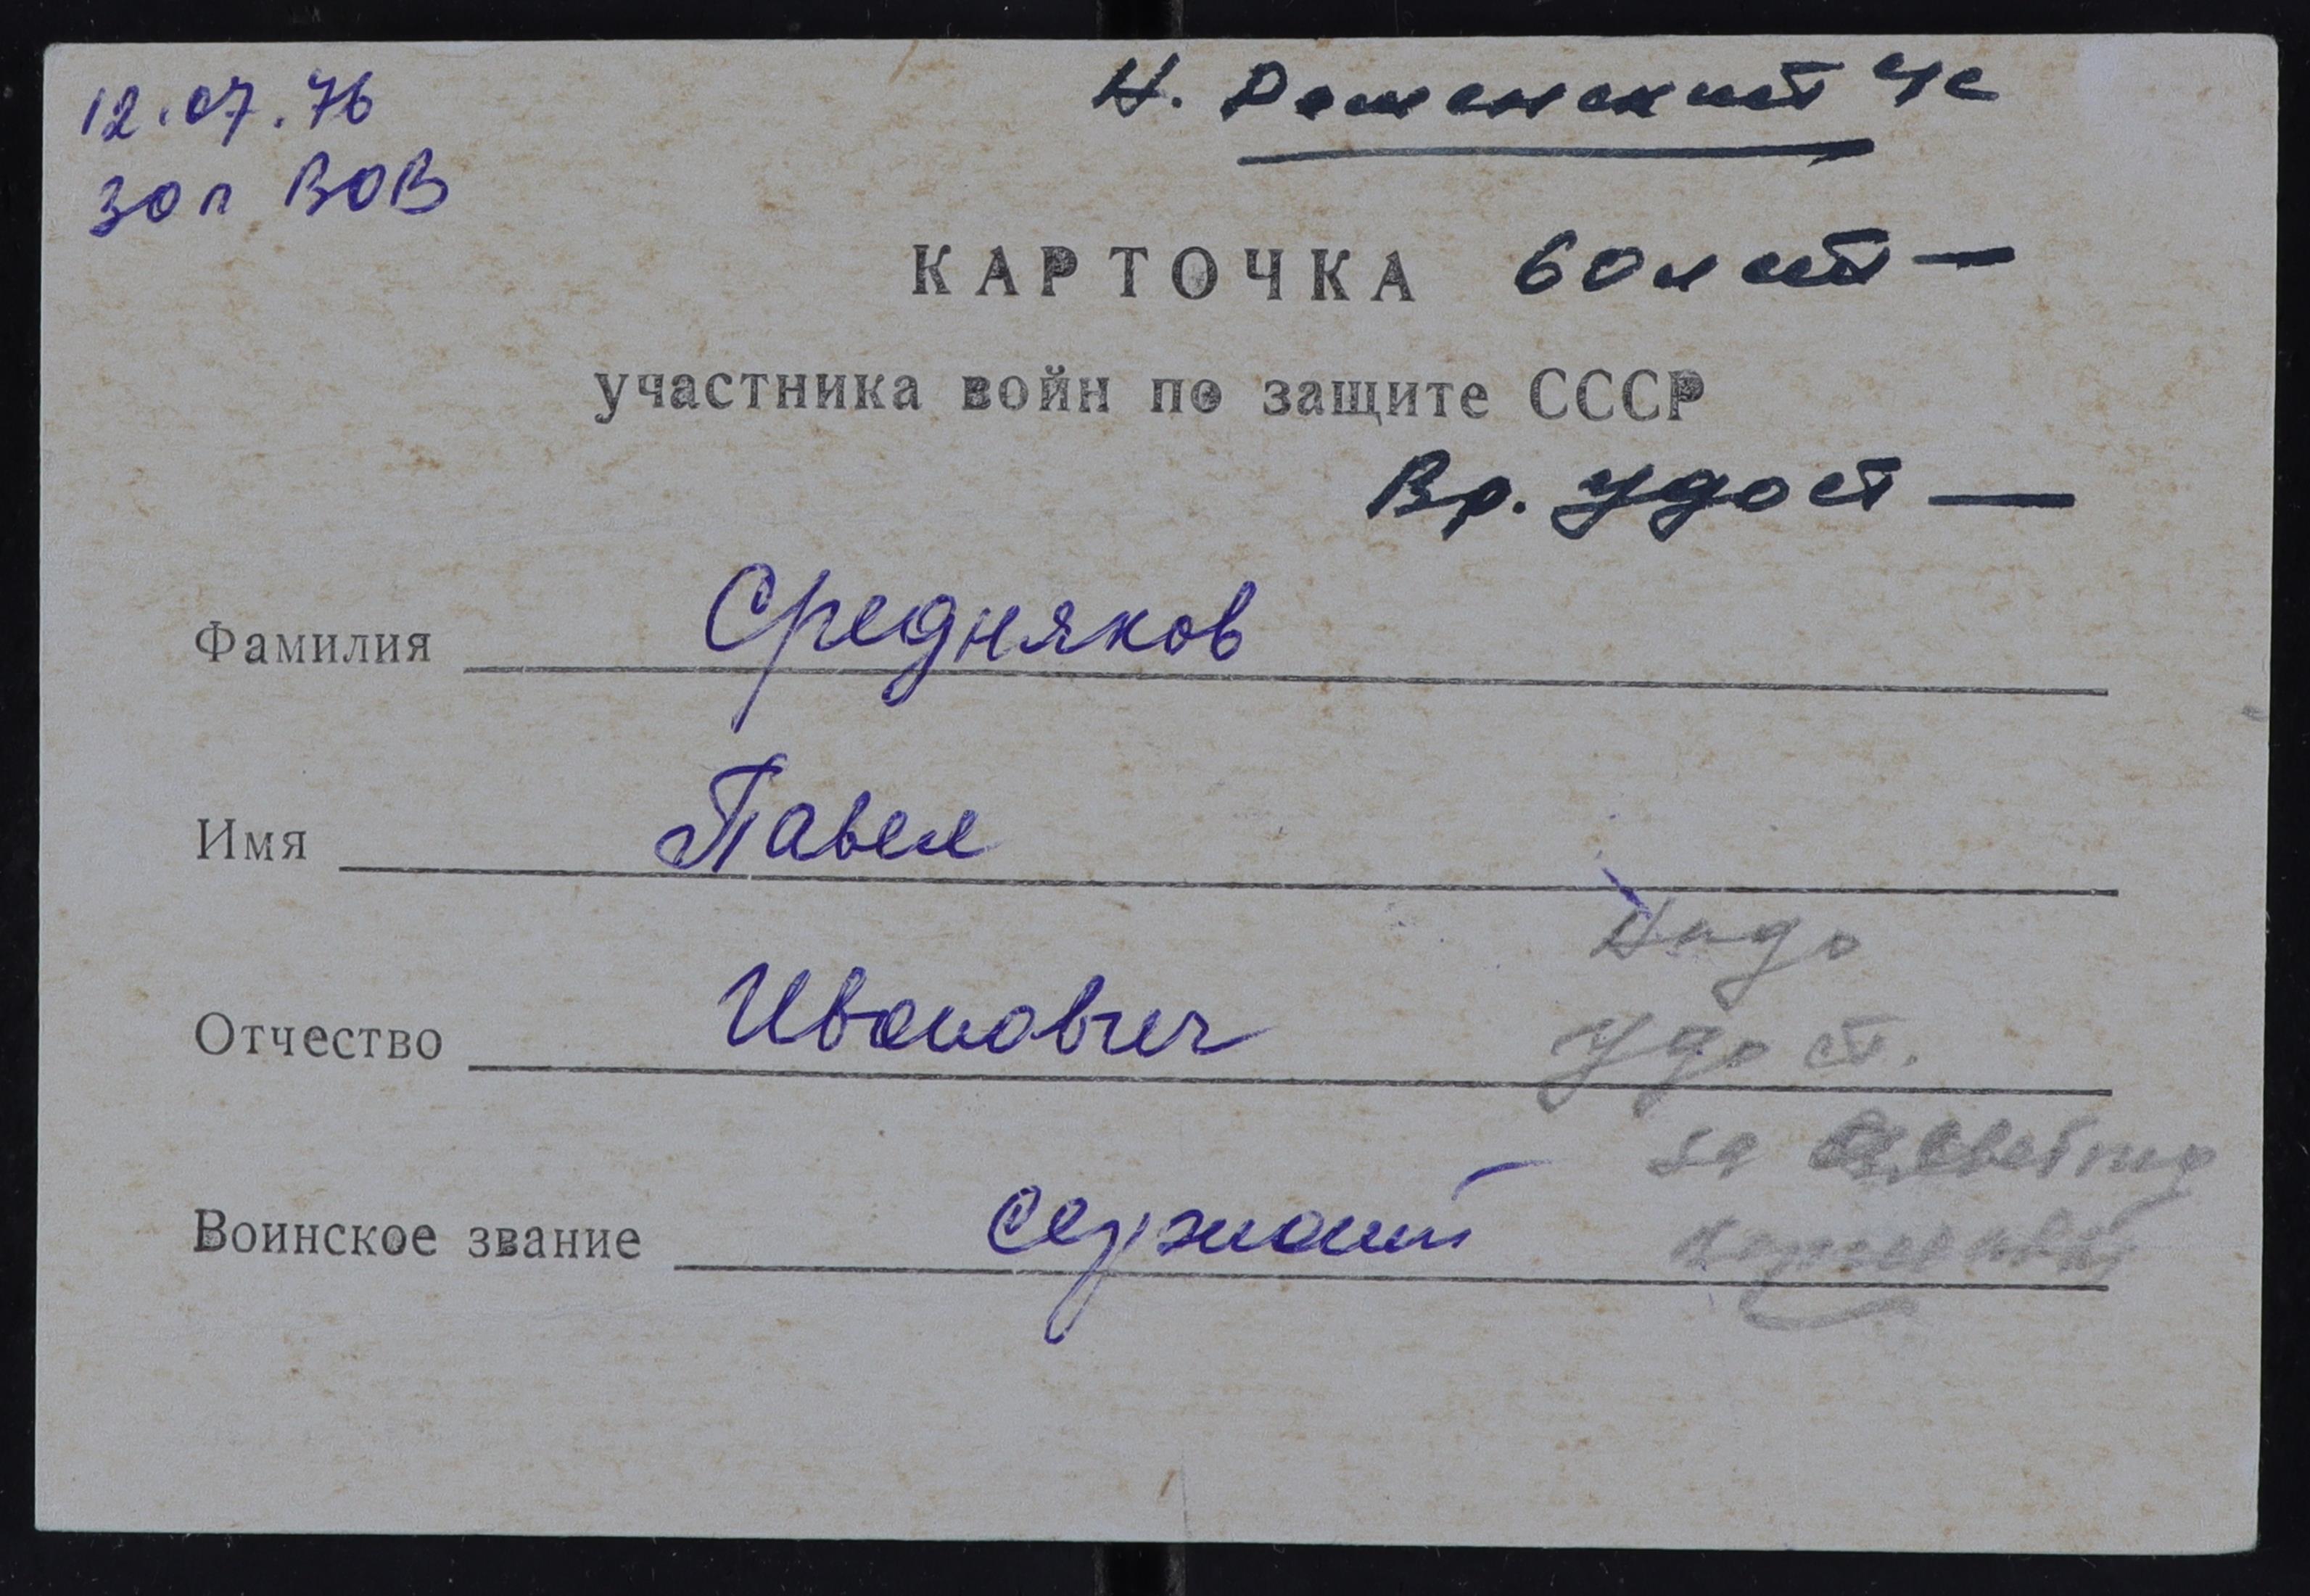 12.07.76
30 л ВОВ
Н.
КАРТОЧКА 60 лет —
участника войн по защите СССР
Вр. удост —
Фамилия Средняков
Имя Павел
Надо
Отчество Иванович
удост.
за
Воинское звание сержант